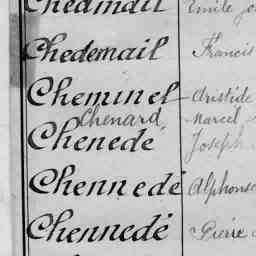 Chedmail Emile
Chedemail Francis
Cheminel Aristide
Chenard Marcel
Chenedé Joseph
Chennedé Alphonse
Chennedé Pierre